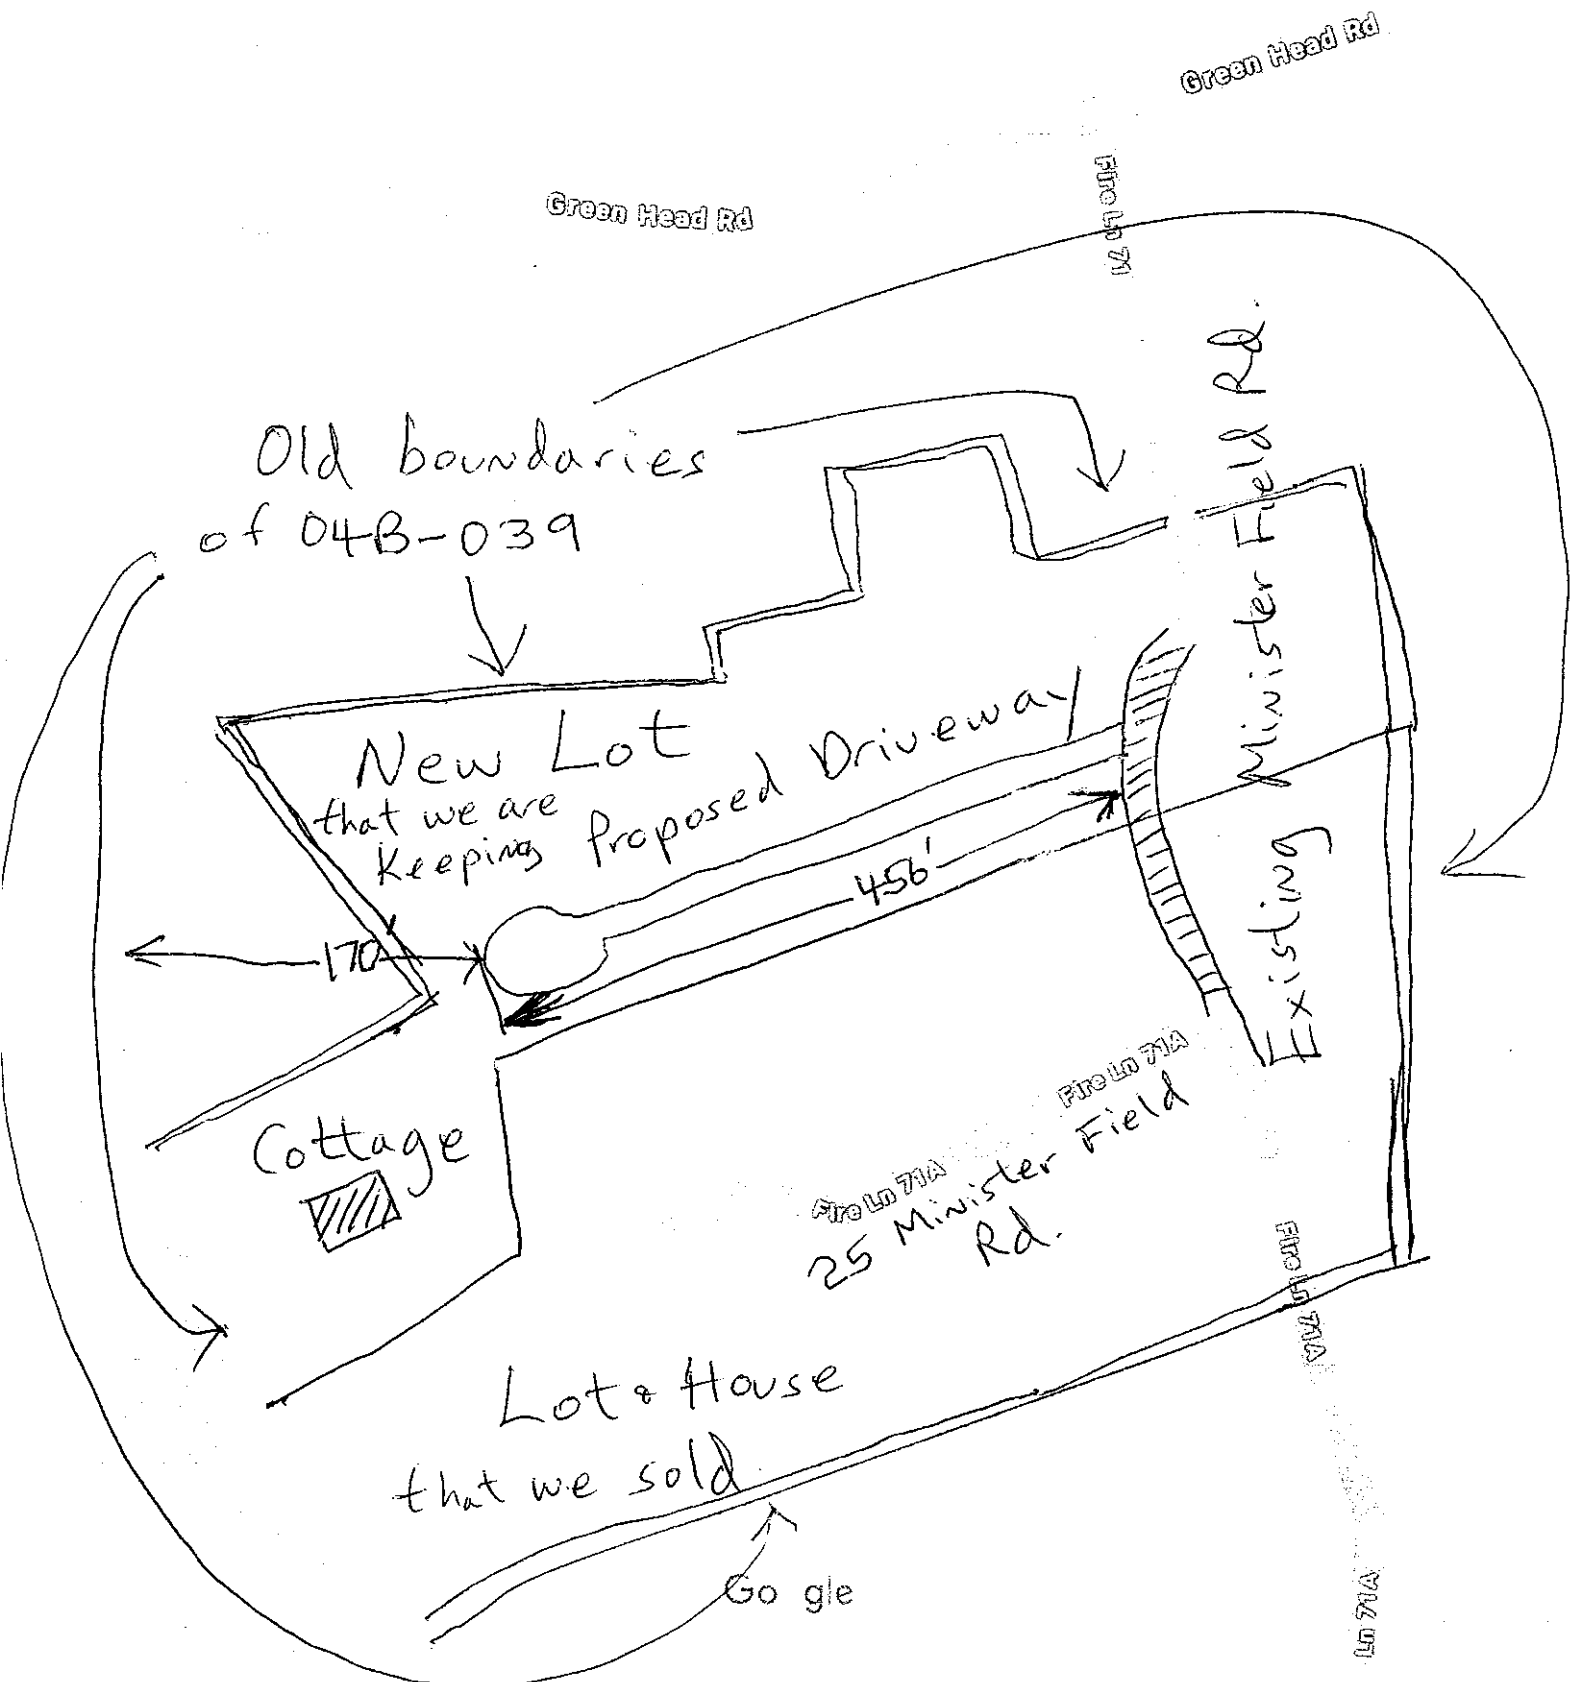 Green Head Rd
Green Head Rd
Fire Ln 71
Old boundaries
of 04B-039
Existing Minister Field Rd.
New Lot
that we are
Keeping
Proposed Driveway
456'
170
Cottage
Fire Ln 71A
Fire Ln 71A
25 Minister Field
Rd.
Fire Ln 71A
Lot & House
that we sold
Go gle
Ln 71A